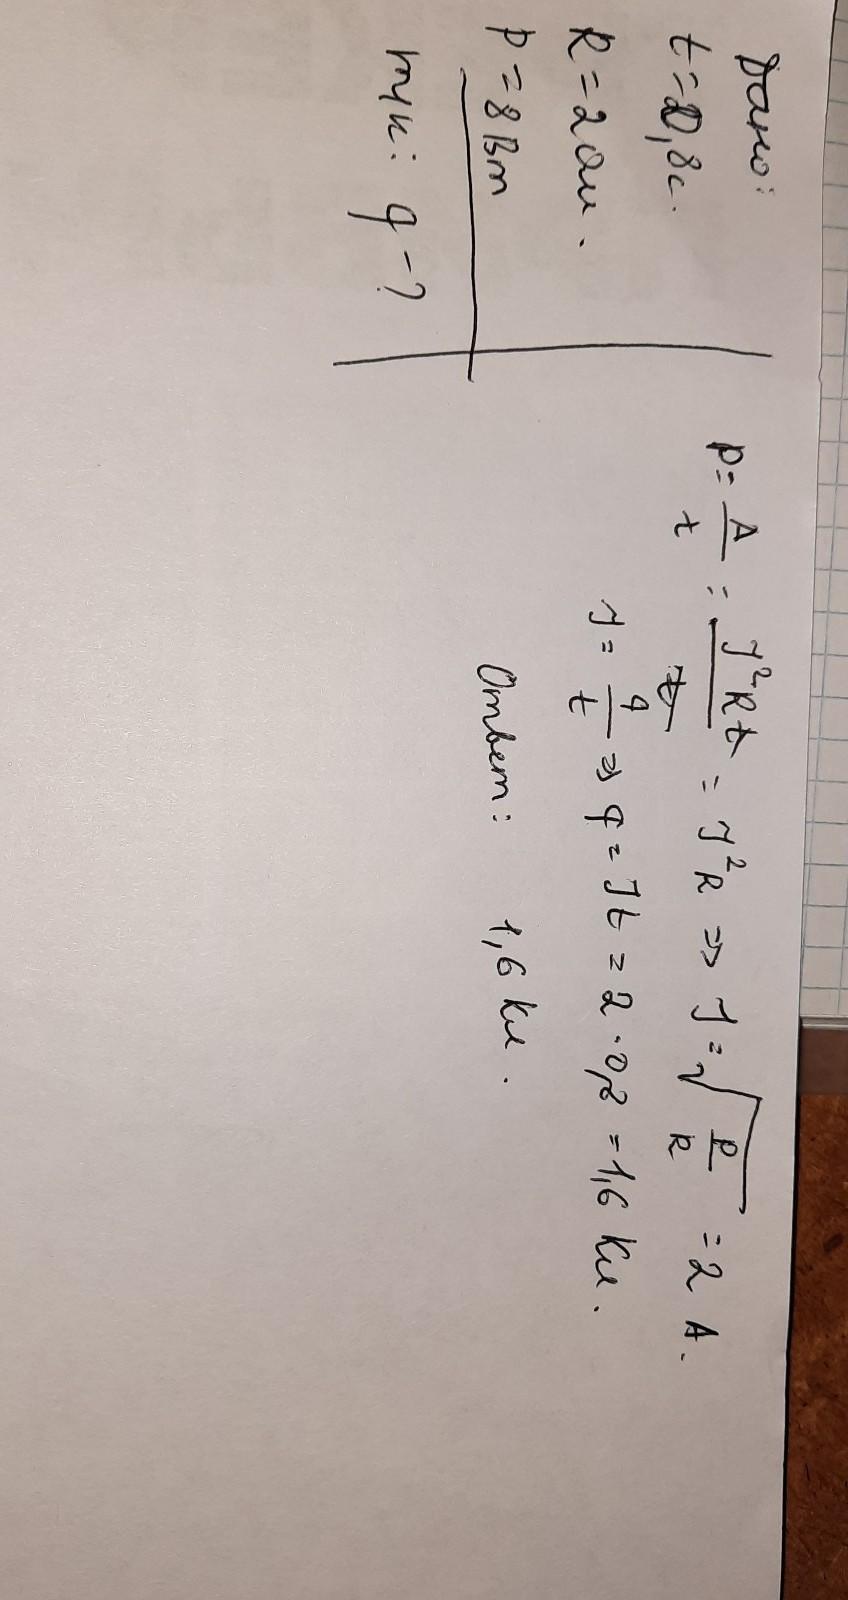 Дано:
t = 0,8с.
R = 2 Ом.
P = 8 Вт
q - ?
P = A/t = J²Rt/t = J²R => J = √P/R = 2 A.
J = q/t => q = Jt = 2 · 0,8 = 1,6 Кл.
Ответ: 1,6 Кл.